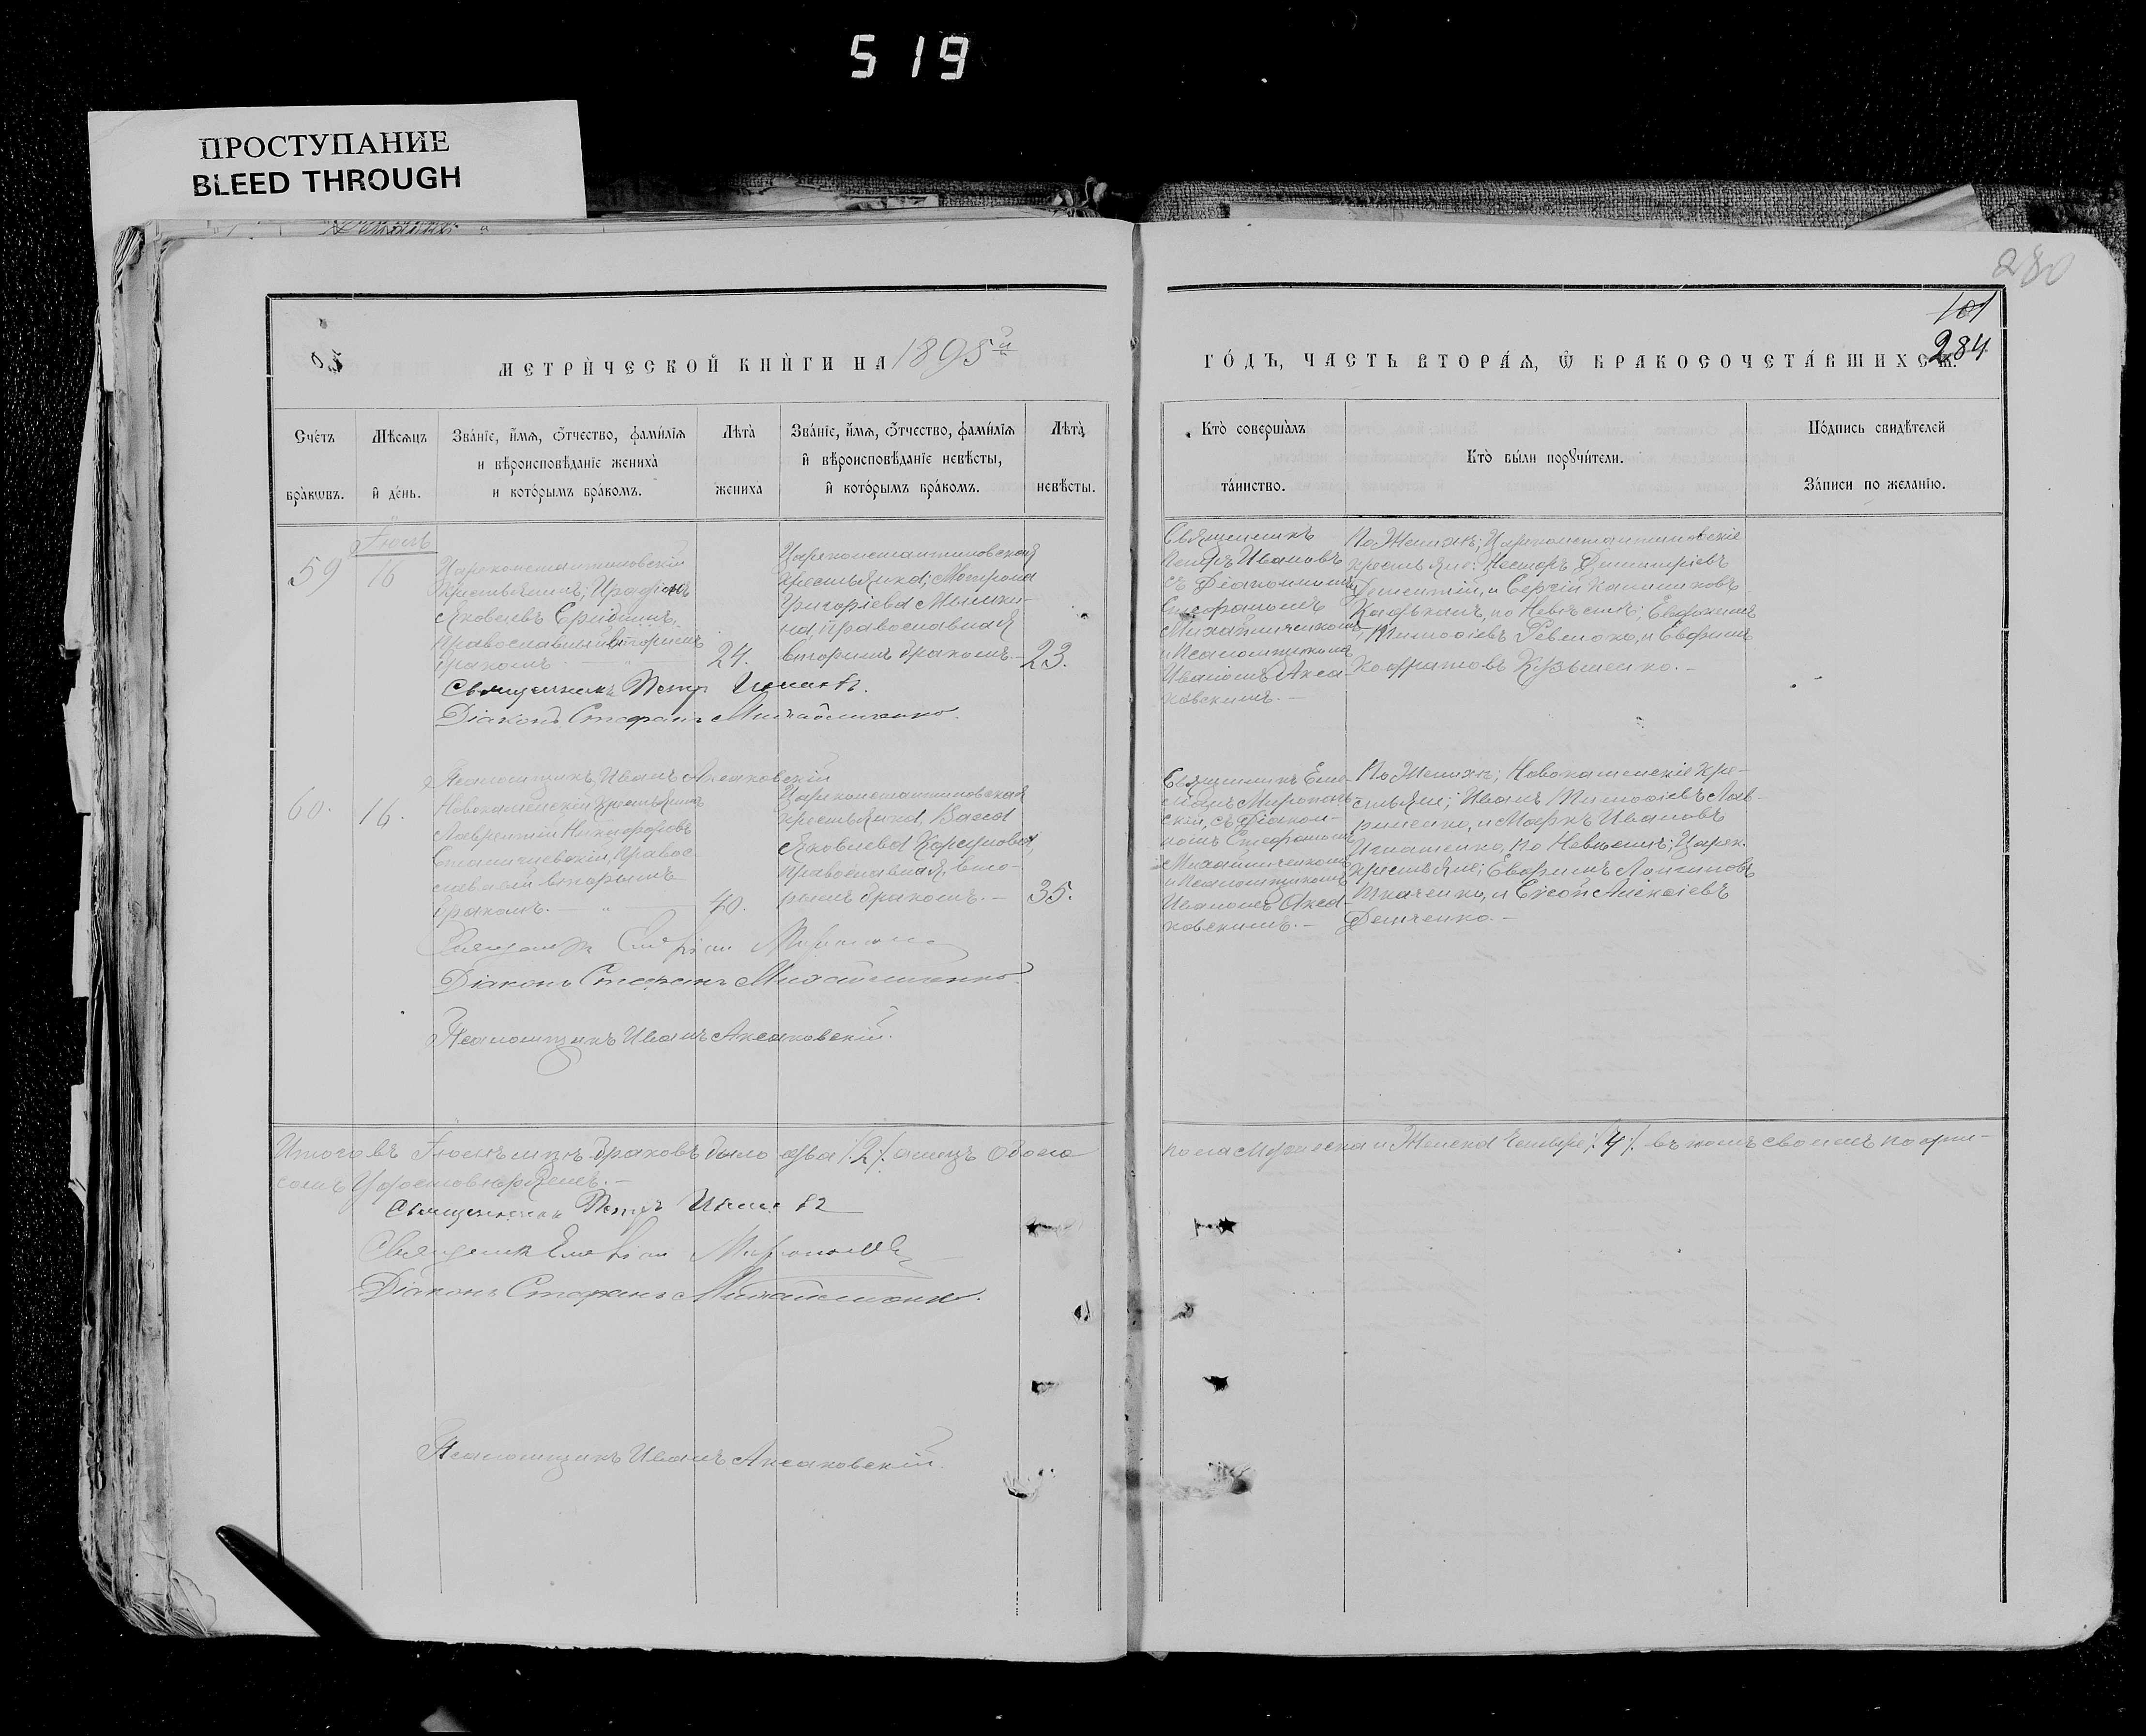 519
ПРОСТУПАНИЕ
BLEED THROUGH
280
101
284
МЕТРИ́ЧЕСКОЙ КНИ́ГИ НА 1895й
ГО́ДЪ, ЧАСТЬ ВТОРА́Ѧ, Ѽ БРАКОСОЧЕТА́ВШИХСѦ.
Сче́тъ бра́кѡвъ.
Мѣ́сѧцъ и҆ де́нь.
Зва́нїе, и҆́мѧ, ѻ҆́тчество, фами́лїѧ
и вѣроисповѣ́данїе жениха̀
и кото́рымъ бра́комъ.
Лѣта̀ жениха̀
Зва́нїе, и҆́мѧ, ѻ҆́тчество, фами́лїѧ
и҆ вѣроисповѣ́данїе невѣ́сты,
и҆ кото́рымъ бра́комъ.
Лѣта̀ невѣ́сты.
Кто̀ соверша́лъ
та́инство.
Кто̀ бы́ли порꙋчи́тели.
По́дпись свидѣ́телей
За́писи по жела́нїю.
Іюль
59
16
Цареконстантиновскій
крестьянинъ;
Яковлевъ
Православный, вторымъ
бракомъ.
24.
Цареконстантиновская
крестьянка; Матрона
Григоріева
на, православная
вторымъ бракомъ.
23.
Священникъ
Петръ Ивановъ
съ Діакономъ
Стефаномъ
Михайличенкомъ
и Псаломщикомъ
Иваномъ Акса-
ковскимъ.
По Женихѣ; Цареконстантиновскіе
крестьяне: Несторъ Димитріевъ
и Сергій
по Невѣстѣ; Евфимъ
Тимофіевъ и Ефримъ
Кузьменко.
Священникъ Петръ Ивановъ.
Діаконъ Стефанъ Михайличенко.
Псаломщикъ Иванъ Аксаковскій
60.
16.
Новокаменскій крестьянинъ
Лаврентій Никифоровъ
правос-
лавный вторымъ
бракомъ.
40.
Цареконстантиновская
крестьянка, Васса
Яковлева
Православная, вто-
рымъ бракомъ.
35.
Священникъ Еме-
ліанъ
скій, съ Діако-
номъ Стефаномъ
Михайличенкомъ
и Псаломщикомъ
Иваномъ Акса-
ковскимъ.
По Женихѣ; Новокаменскіе кре-
стьяне; Иванъ Тимофіевъ Лав-
риненко, и Маркъ Ивановъ
Игнатенко, По Невѣстѣ; Царек.
крестьяне; Ефримъ Логиновъ
Ткаченко, и Сисой Алексіевъ
Демченко.
Діаконъ Стефанъ Михайличенко.
Псаломщикъ Иванъ Аксаковскій.
Итого въ Іюлѣ м-цѣ браковъ было два /2/. а лицъ обоего
пола Мужеска и Женска Четыре; /4/. въ чемъ своимъ подпи-
сомъ Удостовѣряемъ.
Священникъ Петръ Ивановъ
Діаконъ Стефанъ Михайличенко.
Псаломщикъ Иванъ Аксаковскій.